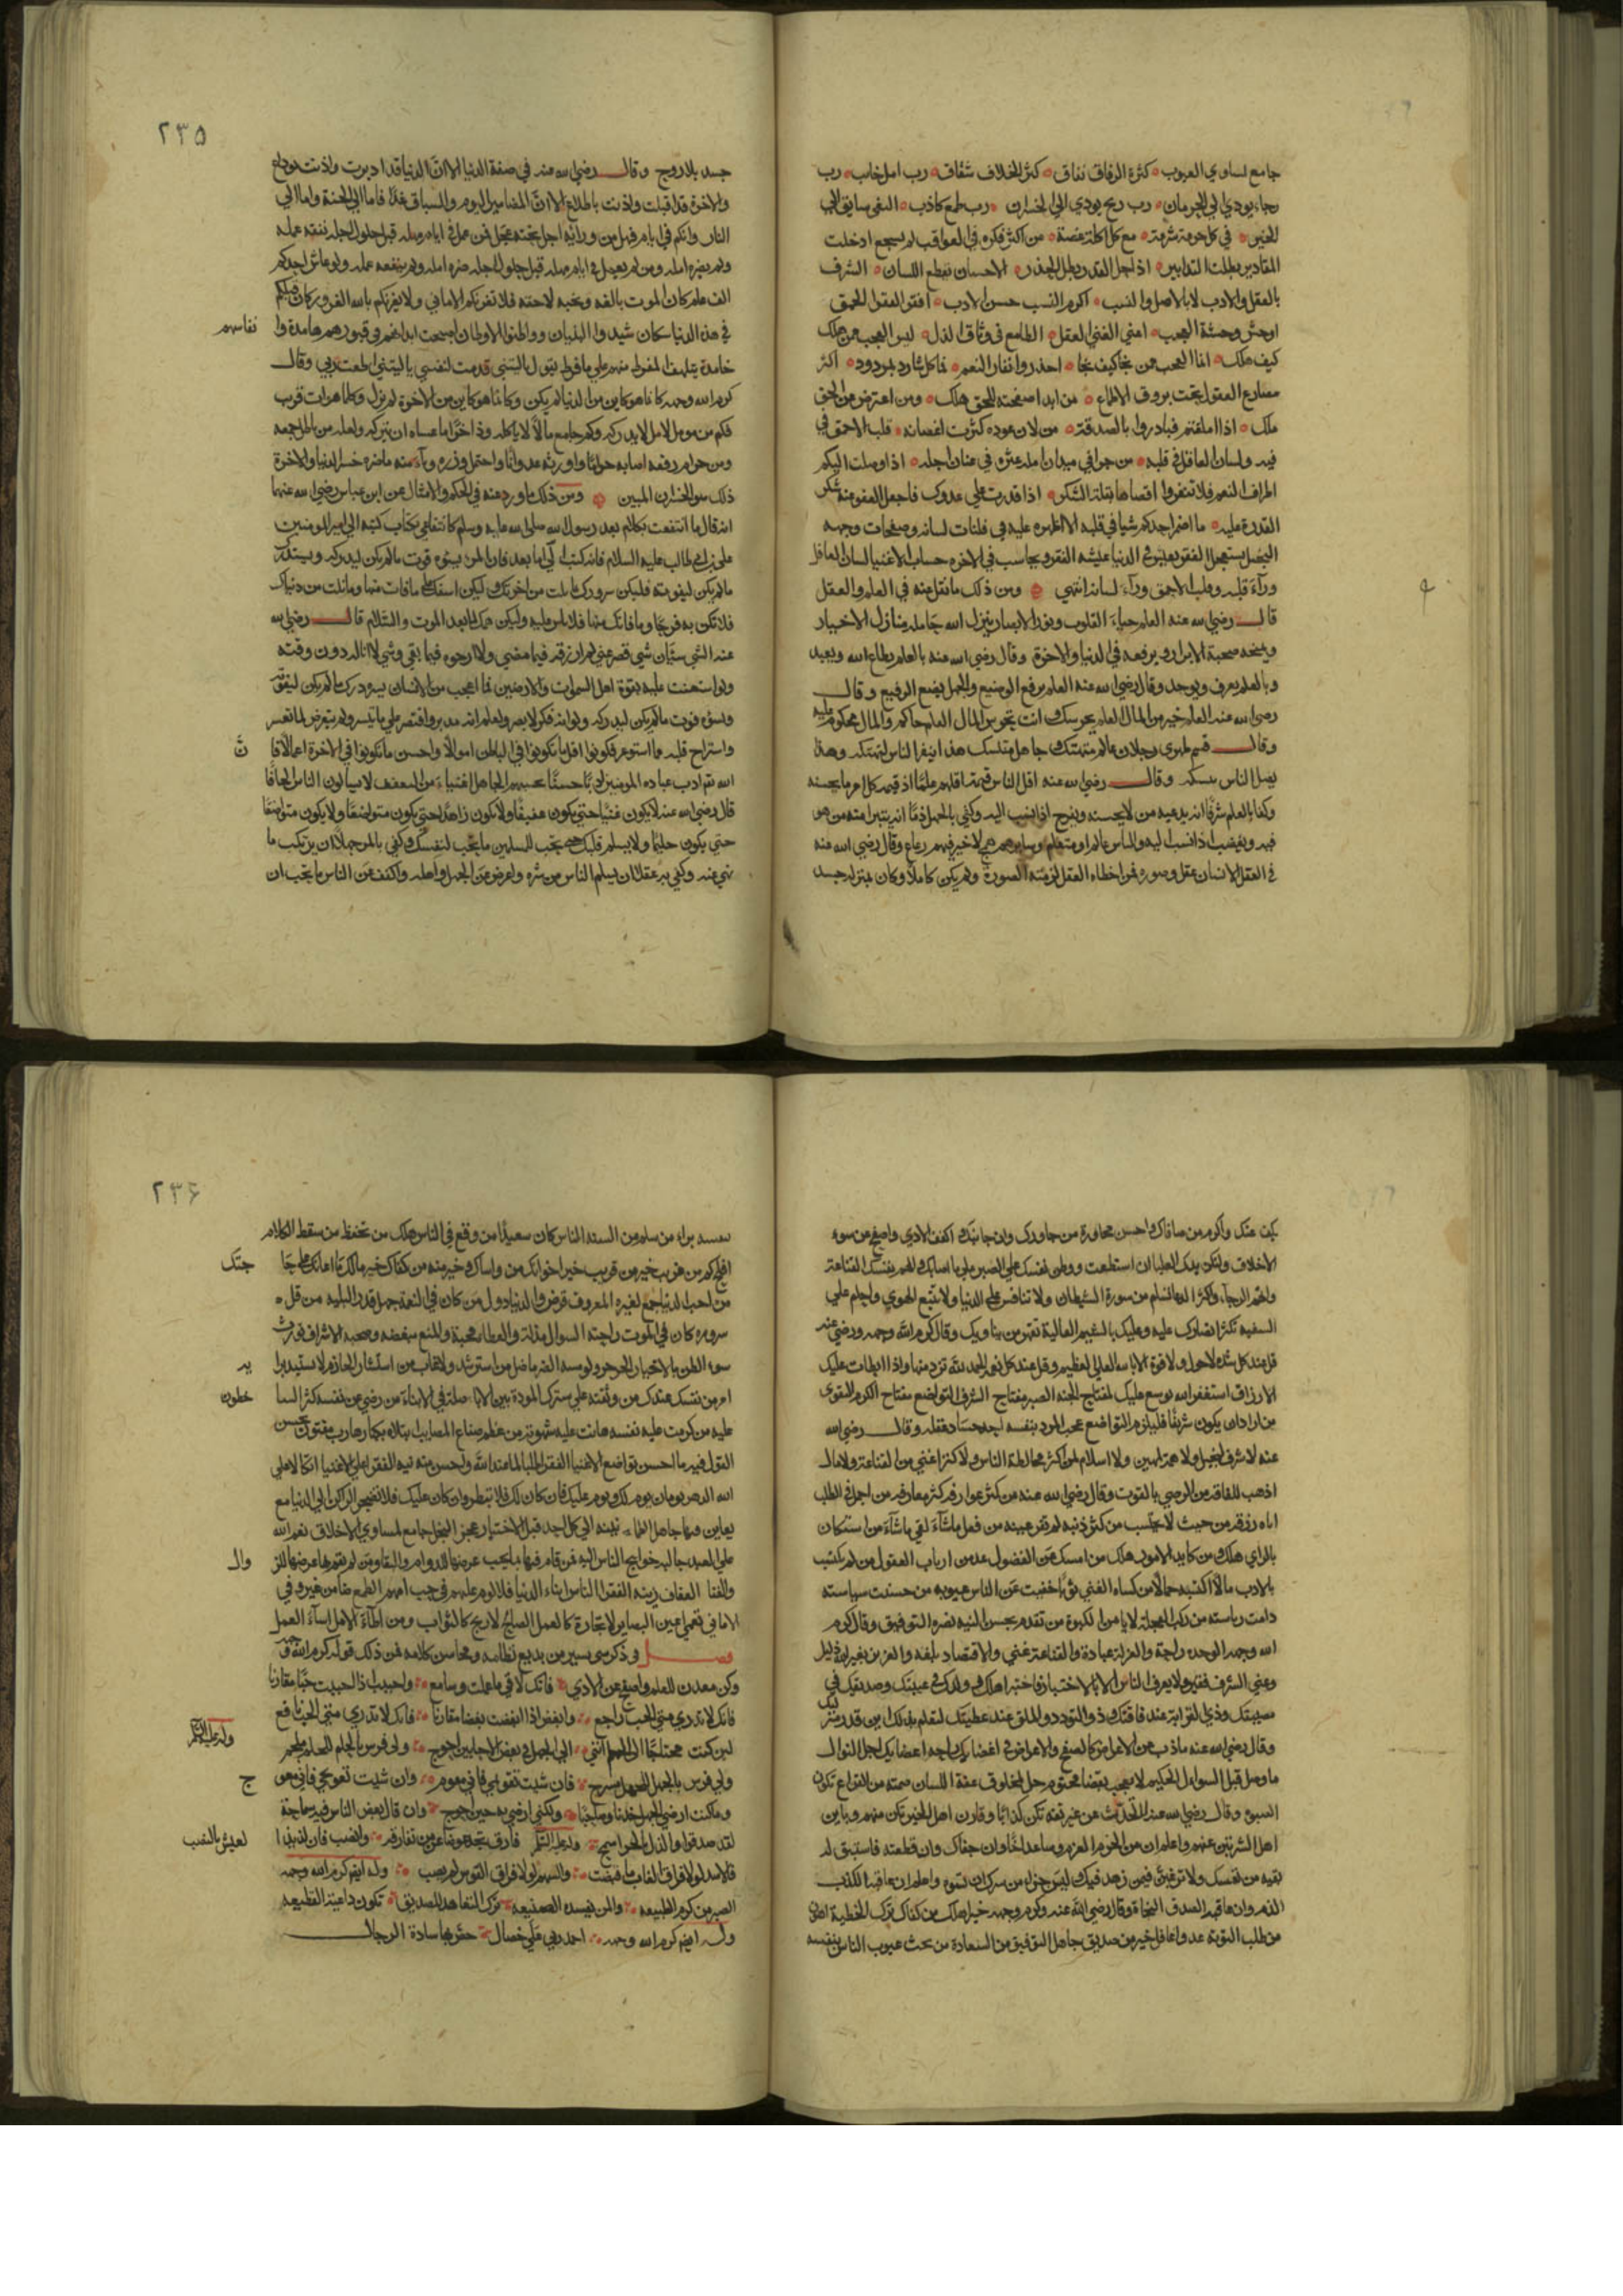 جامع لمساوي العيوب كثرة الوفاق نفاق كثرة الخلاف شقاق رب امل خايب رب
رجاء يودي الي الحرمان رب ربح يودي الي الخسران رب طمع كاذب البغي سايق الي
الحين في كل جرعة شرقة مع كل اكلة غصة من اكثر فكره في العواقب لم يشجع اذا حلت
المقادير بطلت التدابير اذا حل القدر بطل الحذر الاحسان يقطع اللسان الشرف
بالعقل والادب لا بالاصل والنسب اكرم النسب حسن الادب افقر الفقر الحمق
اوحش وحشة العجب اغني الغني العقل الطامع في وثاق الذل ليس العجب ممن هلك
كيف هلك انما العجب ممن نجا كيف نجا احذروا نفار النعم فما كل شارد بمردود اكثر
مصارع العقول تحت بروق الاطماع من ابدا صفحته للحق هلك ومن اعترض عن الحق
هلك اذا املقتم فبادروا بالصدقة من لان عوده كثرت اغصانه قلب الاحمق في
فيه ولسان العاقل في قلبه من جرا في ميدان امله عثر في عنان اجله اذا وصلت اليكم
اطراف النعم فلا تنفروا اقصاها بقلة الشكر اذا قدرت علي عدوك فاجعل العفو عنه شكر
القدرة عليه ما اضمر احدكم شيا في قلبه الا اظهره عليه في فلتات لسانه وصفحات وجهه
البخيل يستعجل الفقر يعيش في الدنيا عيشة الفقر ويحاسب في الاخره حساب الاغنيا لسان العاقل
وراء قلبه وقلب الاحمق وراء لسانه انتهي ومن ذلك ما نقل عنه في العلم والعقل
قال رضي الله عنه العلم حياة القلوب ونور الابصار ينزل الله حامله منازل الاخيار
ويمنحه صحبة الابرار ويرفعه في الدنيا والاخرة وقال رضي الله عنه بالعلم يطاع الله ويعبد
وبالعلم يعرف ويوحد وقال رضي الله عنه العلم يرفع الوضيع والجهل يضع الرفيع وقال
رضي الله عنه العلم خير من المال العلم يحرسك وانت تحرس المال العلم حاكم والمال محكوم عليه
وقال قصم ظهري رجلان عالم متهتك وجاهل متنسك هذا ينفر الناس بتهتكه وهذا
يضل الناس بنسكه وقال رضي الله عنه اقل الناس قيمة اقلهم علما اذ قيمة كل امرء ما يحسنه
وكفا بالعلم شرفا انه يدعيه من لا يحسنه ويفرح اذا نسب اليه وكفي بالجهل ذما انه يتبرا منه من هو
فيه ويغضب اذا نسب اليه والناس عالم او متعلم وسايرهم همج لا خير فيهم رعاع وقال رضي الله عنه
في العقل الانسان عقل وصوره فمن اخطاه العقل لزمته الصورة ولم يكن كاملا وكان بمنزلة جسد
۲۳۵
جسد بلا روح وقال رضي الله عنه في صفة الدنيا الا ان الدنيا قد ادبرت واذنت بوداع
والاخرة قد اقبلت واذنت باطلاع الا ان المضامير اليوم والسباق غدا فاما الي الجنة واما الي
النار وانكم في ايام مهل من ورائه اجل يحثه عجل فمن عمل في ايام مهله قبل حلول اجله نفعه عمله
ولم يضره امله ومن لم يعمل في ايام مهله قبل حلول اجله ضره امله ولم ينفعه عمله ولو عاش احدكم
الف عام كان الموت بالغه ونحبه لاحقه فلا تغرنكم الاماني ولا يغرنكم بالله الغرور وكان قبلكم
في هذه الدنيا سكان شيدوا البنيان ووطنوا الاوطان اصبحت ابدانهم في قبورهم هامدة وا
نفاسهم
خامدة يتلهف المفرط منهم علي ما فرط يقول يا ليتني قدمت لنفسي يا ليتني اطعت ربي وقال
كرم الله وجهه كانما هو كاين من الدنيا لم يكن وكانما هو كاين من الاخرة لم يزل وكلما هو ات قرب
فكم من مومل لامل لا يدركه وكم جامع مالا لا ياكله وذاخر ما عساه ان يتركه ولعله من باطل جمعه
ومن حرام رفعه اصابه حراما واورثه عدوانا واحتمل وزره وباء منه ما ضره خسر الدنيا والاخرة
ذلك هو الخسران المبين ومن ذلك ما ورد عنه في الحكم والامثال عن ابن عباس رضي الله عنهما
انه قال ما انتفعت بكلام بعد رسول الله صلي الله عليه وسلم كانتفاعي بكتاب كتبه الي امير المومنين
علي بن ابي طالب عليه السلام فانه كتب الي اما بعد فان المرء يسؤه فوت مالم يكن ليدركه ويسره درك
مالم يكن ليفوته فليكن سرورك بما نلت من اخرتك وليكن اسفك علي ما فات منها وما نلت من دنياك
فلا تكن به فرحا وما فاتك منها فلا تاس عليه وليكن همك لما بعد الموت والسلام قال رضي الله
عنه الشي شيان شي قصر عني لم ارزقه فيما مضي ولا ارجوه فيما بقي وشي لا اناله دون وقته
ولو استعنت عليه بقوة اهل السموات والارضين فما اعجب من الانسان يسره درك مالم يكن ليفوته
ويسؤه فوت مالم يكن ليدركه ولو انه فكر لابصر ولعلم انه مدبر واقتصر علي ما تيسر ولم يتعرض لما تعسر
واستراح قلبه مما استوعر فكونوا اقل ما تكونوا في الباطن اموالا واحسن ما تكونوا في الاخرة اعمالا فا
ن
الله تم ادب عباده المومنين ادبا حسنا يحسبهم الجاهل اغنياء من التعفف لا يسالون الناس الحافا
قال رضي الله عنه لا يكون غنيا حتي يكون عفيفا ولا يكون زاهدا حتي يكون متواضعا ولا يكون متواضعا
حتي يكون حليما ولا يسلم قلبك حتي تحب للمسلمين ما تحب لنفسك وكفي بالمرء جهلا ان يرتكب ما
نهي عنه وكفي به عقلا ان يسلم الناس من شره واعرض عن الجهل واهله واكفف عن الناس ما تحب ان
يكف عنك واكرم من صافاك واحسن مجاورة من جاورك وان جانبك واكفف الاذي واصفح عن سوء
الاخلاق ولتكن يدك العليا ان استطعت ووطن نفسك علي الصبر علي ما اصابك والهم نفسك القناعة
واتهم الرجاء واكثر الدعا تسلم من سورة الشيطان ولا تنافس علي الدنيا ولا تتبع الهوي واحلم علي
السفيه تكثر انصارك عليه وعليك بالشيم العالية تقهر من يناويك وقال كرم الله وجهه ورضي عنه
قل عند كل شدة لا حول ولا قوة الا بالله العلي العظيم وقل عند كل نعمة الحمد لله تزد منها واذا ابطات عليك
الارزاق استغفر الله يوسع عليك مفتاح الجنه الصبر مفتاح الشرف التواضع مفتاح الكرم التقوي
من اراد ان يكون شريفا فليلزم التواضع عجب المرء بنفسه احد حساد عقله وقال رضي الله
عنه لا شرف لبخيل ولا همة لمهين ولا سلامة لمن اكثر مخالطة الناس ولا كنز اغني من القناعة ولا مال
اذهب للفاقة من الرضي بالقوت وقال رضي الله عنه من كثر عوارفه كثر معارفه من اجمل في الطلب
اتاه رزقه من حيث لا يحتسب من كثر ذنبه لم تقر عينه من فعل ما شاء لقي ما شاء من استعان
بالراي هلك ومن كابد الامور هلك من امسك عن الفضول عد من ارباب العقول من لم يكتسب
بالادب مالا اكتسب جمالا من كساه الغني ثوبا خفيت عن الناس عيوبه من حسنت سياسته
دامت رياسته من ركب العجلة لا يامن الكبوة من تقدم بحسن النيه نصره التوفيق وقال كرم
الله وجهه الوحدة راحة والعزلة عبادة والقناعة غني والاقتصاد بلغه والعزيز بغير الله ذليل
وغني الشره فقير ولا يعرف الناس الا بالاختبار فاختبر اهلك وولدك في غيبتك وصديقك في
مصيبتك وذي القرابة عند فاقتك وذو التودد والملق عند عطلتك لتعلم بذلك اين قدر منزلتك
وقال رضي الله عنه
السبوء وقال رضي الله عنه لا تحدث عن غير ثقة تكن كذابا وقارن اهل الخير تكن منهم وباين
اهل الشر تبن عنهم واعلم ان من الحزم العزم وساعد اخاك وان جفاك وان قطعته فاستبق له
بقية من نفسك ولا ترغبن فيمن زهد فيك وليس جزاء من سرك ان تسوه واعلم ان عاقبة الكذب
الذم وان عاقبة الصدق النجاة وقال رضي الله عنه وكرم وجهه خير اهلك من كفاك ترك الخطية اهون
من طلب التوبة عدو عاقل خير من صديق جاهل التوفيق من السعادة من بحث عيوب الناس بنفسه
۲۳۶
من سلم من السنة الناس كان سعيدا من وقع في الناس هلك من تحفظ من سقط الكلام
افلح كم من غريب خير من قريب خير اخوانك من واساك وخير منه من كفاك خير مالك ما اعانك علي حا
جتك
من احب الدنيا جمع لغيره المعروف قرض والدنيا دول من كان في النعمة جهل قدر البلية من قل
سروره كان في الموت راحته السوال مذلة والعطاء محبة والمنع مبغضه وصحبة الاشرار تورث
سوء الظن بالاخيار
ير
خطون
عليه من كرمت عليه نفسه هانت عليه شهوته من عظم صغار المصايب ابتلاه بكبارها رب مفتون بحسن
القول فيه ما احسن تواضع الاغنيا للفقرا طلبا لما عند الله واحسن منه تيه الفقرا علي الاغنيا اتكالا علي
الله الدهر يومان يوم لك ويوم عليك فان كان لك فلا تبطر وان كان عليك فلا تضجر الراكن الي الدنيا مع
يعاين منها جاهل الطمانينه الي كل احد قبل الاختبار عجز البخل جامع لمساوي الاخلاق نعم الله
علي العبد جالبه حوايج الناس اليه فمن قام فيها بما يجب عرضها للدوام والبقا ومن لم يقم بها عرضها للز
وال
والفنا العفاف زينه الفقر الناس ابناء الدنيا فلا لوم عليهم في حب امهم الطمع ضامن غير وفي
الاماني تعمي اعين البصاير لا تجارة كالعمل الصالح لا ربح كالثواب ومن اطال الامل اساء العمل
فصل في ذكر شي يسير من بديع نظامه ومحاسن كلامه فمن ذلك قوله كرم الله وجهه
وكن معدن للحلم واصفح عن الاذي فانك لاقي ما عملت وسامع واحبب اذا احببت حبا مقاربا
فانك لا تدري متي الحب راجع وابغض اذا ابغضت بغضا مقاربا فانك لا تدري متي الحب نافع
وله عليه السلام
لين كنت محتاجا الي الحلم انني الي الجهل في بعض الاحايين احوج ولي فرس بالحلم للحلم ملجم
ولي فرس بالجهل للجهل مسرج فان شيت تقويمي فاني مقوم وان شيت تعويجي فاني معو
ج
وما كنت ارضي الجهل خدنا وصاحبا ولكنني ارضي به حين احوج وان قال بعض الناس فيه سماجة
لقد صدقوا والذل بالحر اسمج وله عليه السلام فارق تجد عوضا عمن تفارقه وانصب فان لذيذ ا
لعيش بالنصب
فالاسد لولا فراق الغاب ما قنصت والسهم لولا فراق القوس لم يصب وله ايضا كرم الله وجهه
الصبر من كرم الطبيعه والمن مفسده الصنيعه ترك التعاهد للصديق تكون داعية القطيعه
وله ايضا كرم الله وجهه احمد ربي علي خصال خص بها سادة الرجال